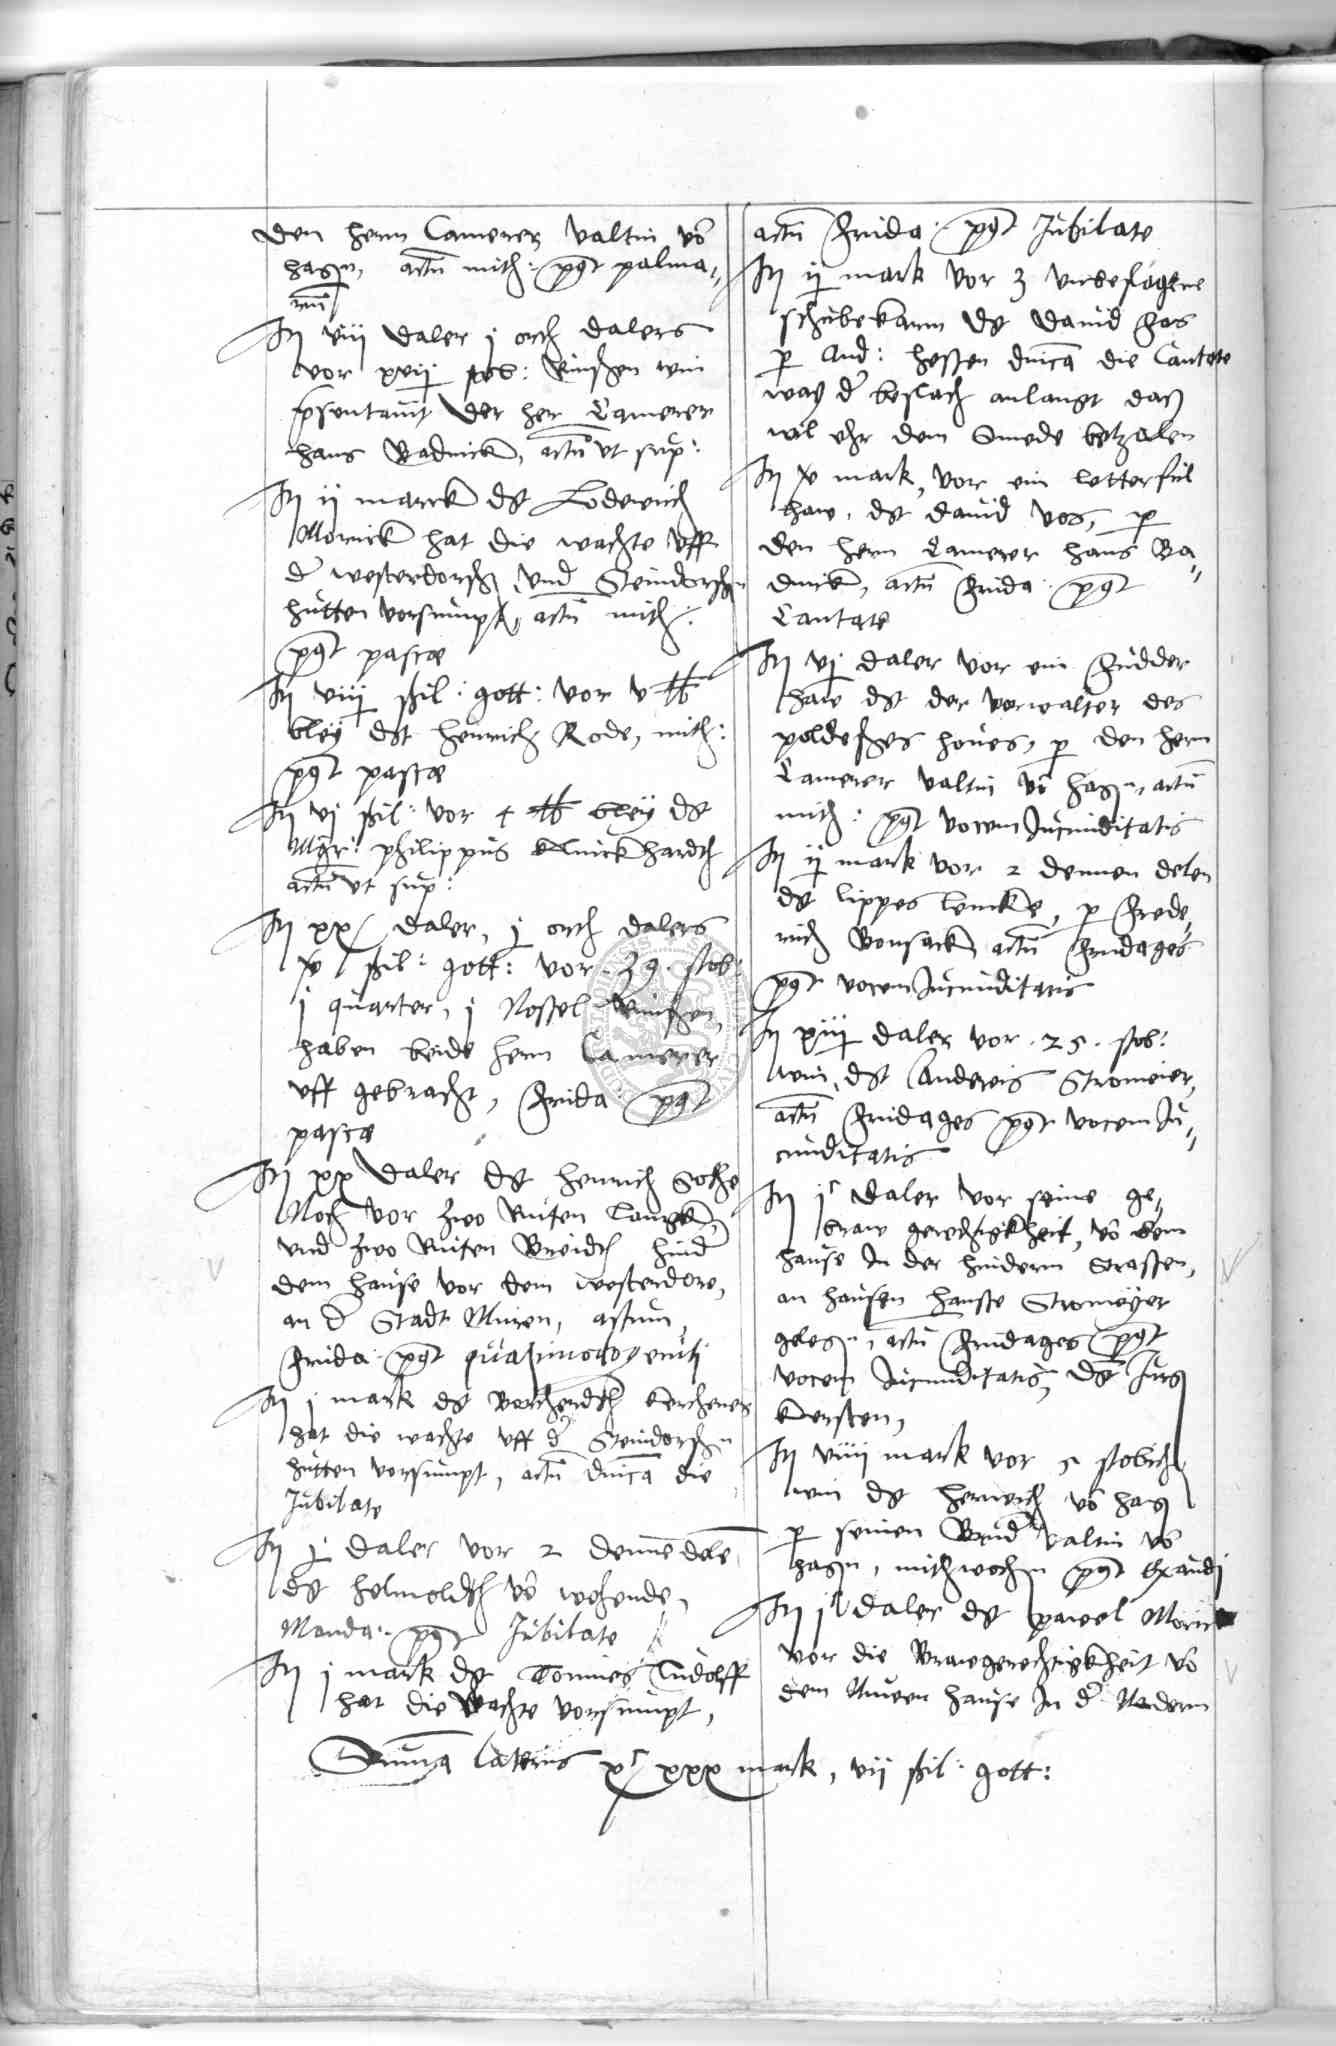 den hern Camerer Valtin vō
hagen, actū mith: post palma„
rum
Itē viii daler j orth dalers
vor xvij stob: Rinschen win
p̄sentavit der her Camerer
hans Radnick, actū ut sup:
Itē ij marck dt Lodewich
Morrick hat die wachte uff
d' westerdorsch und Steindorschn
hutten vorsumpt, actū mith:
post pascæ
Itē viij ßil: gott: vor v ℔
bley dt henrich Rode, mith:
post pascæ
Itē vj ßil: vor 4 ℔ bley dt
Mgr: philippus Klinckhardt
actū ut sup:
Itē xx daler, j orth dalers
ßil: gott: vor 39 stob:
j quarter, j Nossel Rinschen,
haben beide hern Camerer
uff gebracht, frida: post
pascæ
Itē xx daler dt henrich
Noch vor zwo Ruten lanck,
und zwo Ruten Breidt hind'
dem hause vor dem westerdore,
an d' Stadt Muren, actum,
frida: post quasimodogeniti
Itē j mark dt Borchardt kercheners
hat die wachte uff d' Steindorschn
hutten vorsumpt, actū dnica die
Jubilate
Itē j daler vor 2 denne dele
dt helmoldt vō wehende,
Manda: post Jubilate
Itē j mark dt Tonnies Ludolff
hat die wachte vorsumpt,
actū frida: post Jubilate
Itē ij mark vor 3 unbeslagene
schubekarn dt David Vos
p And: hessen dnica die Cantate
was d' beslach anlangt das
wil ehr dem Smede betzalen
Itē mark, vor ein
haw, dt David Vos, p
den hern Camerer hans Ra„
dnick, actū frida: post
Cantate
Itē vj daler vor ein fudder
haw dt der vorwalter des
poldeschen hoves, p den hern
Camerer Valtin vō hagen, actū
mith: post vocem Jucunditatis
Itē ij mark vor 2 dennen delen
dt lippes lencke, p frede„
rich Bonsack actū fridages
post vocem Jucunditatis
Itē xiij daler vor 25 stob:
win, dt Andreis Stromeier,
actū fridages post vocem Ju„
cunditatis
Itē jc daler vor seine ge„
braw gerechtigkheit, vō dem
hause In der hindern Strassen,
an hansen hanste Stromeyer
gelegen, actū fridages post
vocem Jucunditatis, dt Jurg
Kersten,
Itē viiij mark vor 5 stobich
win dt herwich vō hagen
p seinen Brud' Valtin vō
hagen, mithwochen post Exaudi
Itē jc daler dt pawel Morrick
vor die Brawgerechtigkheit vō
dem Nuwen hause In d' Nedern
Summa lateris xc xxx mark, vii ßil: gott: